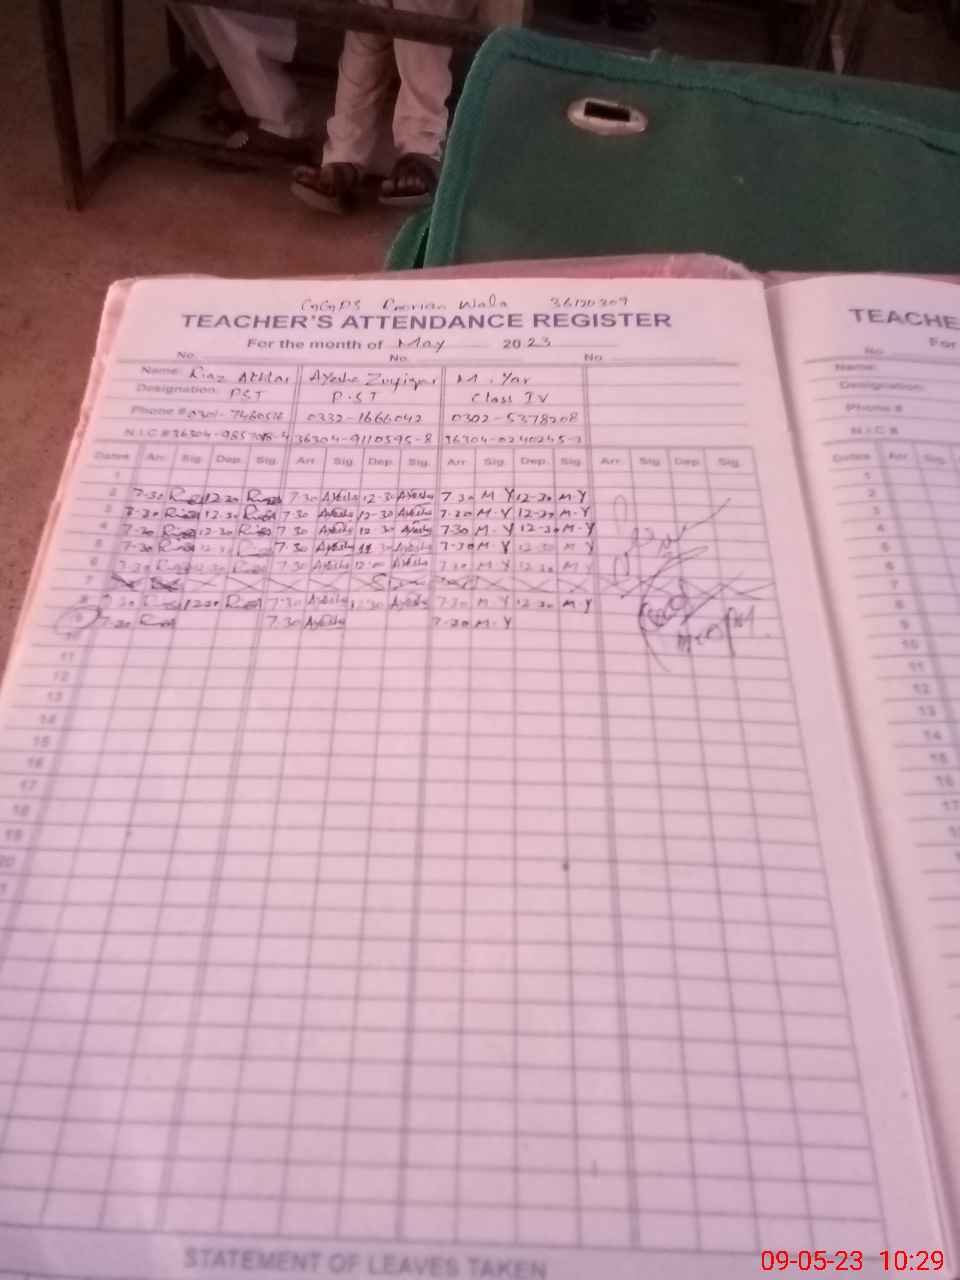 GGPS Wala 36120309
TEACHER'S ATTENDANCE REGISTER
For the month of May 2023
No. No. No
Name: Riaz Akhtar Ayesha Zulfiqar M. Yar
Designation: PST P.ST Class IV
Phone # 0332-1666042 0302-5378208
N.I.C # 36304-9110595-8
Dates Arr. Sig. Dep. Sig. Arr Sig. Dep. Sig. Arr Sig. Dep. Sig. Arr. Sig. Dep. Sig.
1
2 7-30 Riaz 12-30 Riaz 7-30 Ayesha 12-30 Ayesha 7.30 M Y 12-30 M.Y
3 7-30 Riaz 12-30 Riaz 7-30 Ayesha 12-30 Ayesha 7-30 M.Y 12-30 M.Y
4 7-30 Riaz 12-30 Riaz 7 30 Ayesha 12 30 Ayesha 7.30 M.Y 12-30 M.Y
5 7-30 Riaz Riaz 7-30 Ayesha Ayesha 7-30 M.Y 12-30 M Y
6 7-30 Riaz 12-30 Riaz 7-30 Ayesha Ayesha 7.30 M Y 12-30 M Y
7
8 7-30 Riaz 12-30 Riaz 7-30 Ayesha 12-30 Ayesha 7-30 M Y 12-30 M.Y
9 7-30 Riaz 7.30 Ayesha 7-30 M.Y
10
11
12
13
14
15
16
17
18
19
20
STATEMENT OF LEAVES TAKEN
TEACHE
For
No
Name:
Designation:
Phone #
N.I.C #
Dates Arr Sig.
1
2
3
4
5
6
7
8
9
10
11
12
13
14
15
16
17
09-05-23 10:29